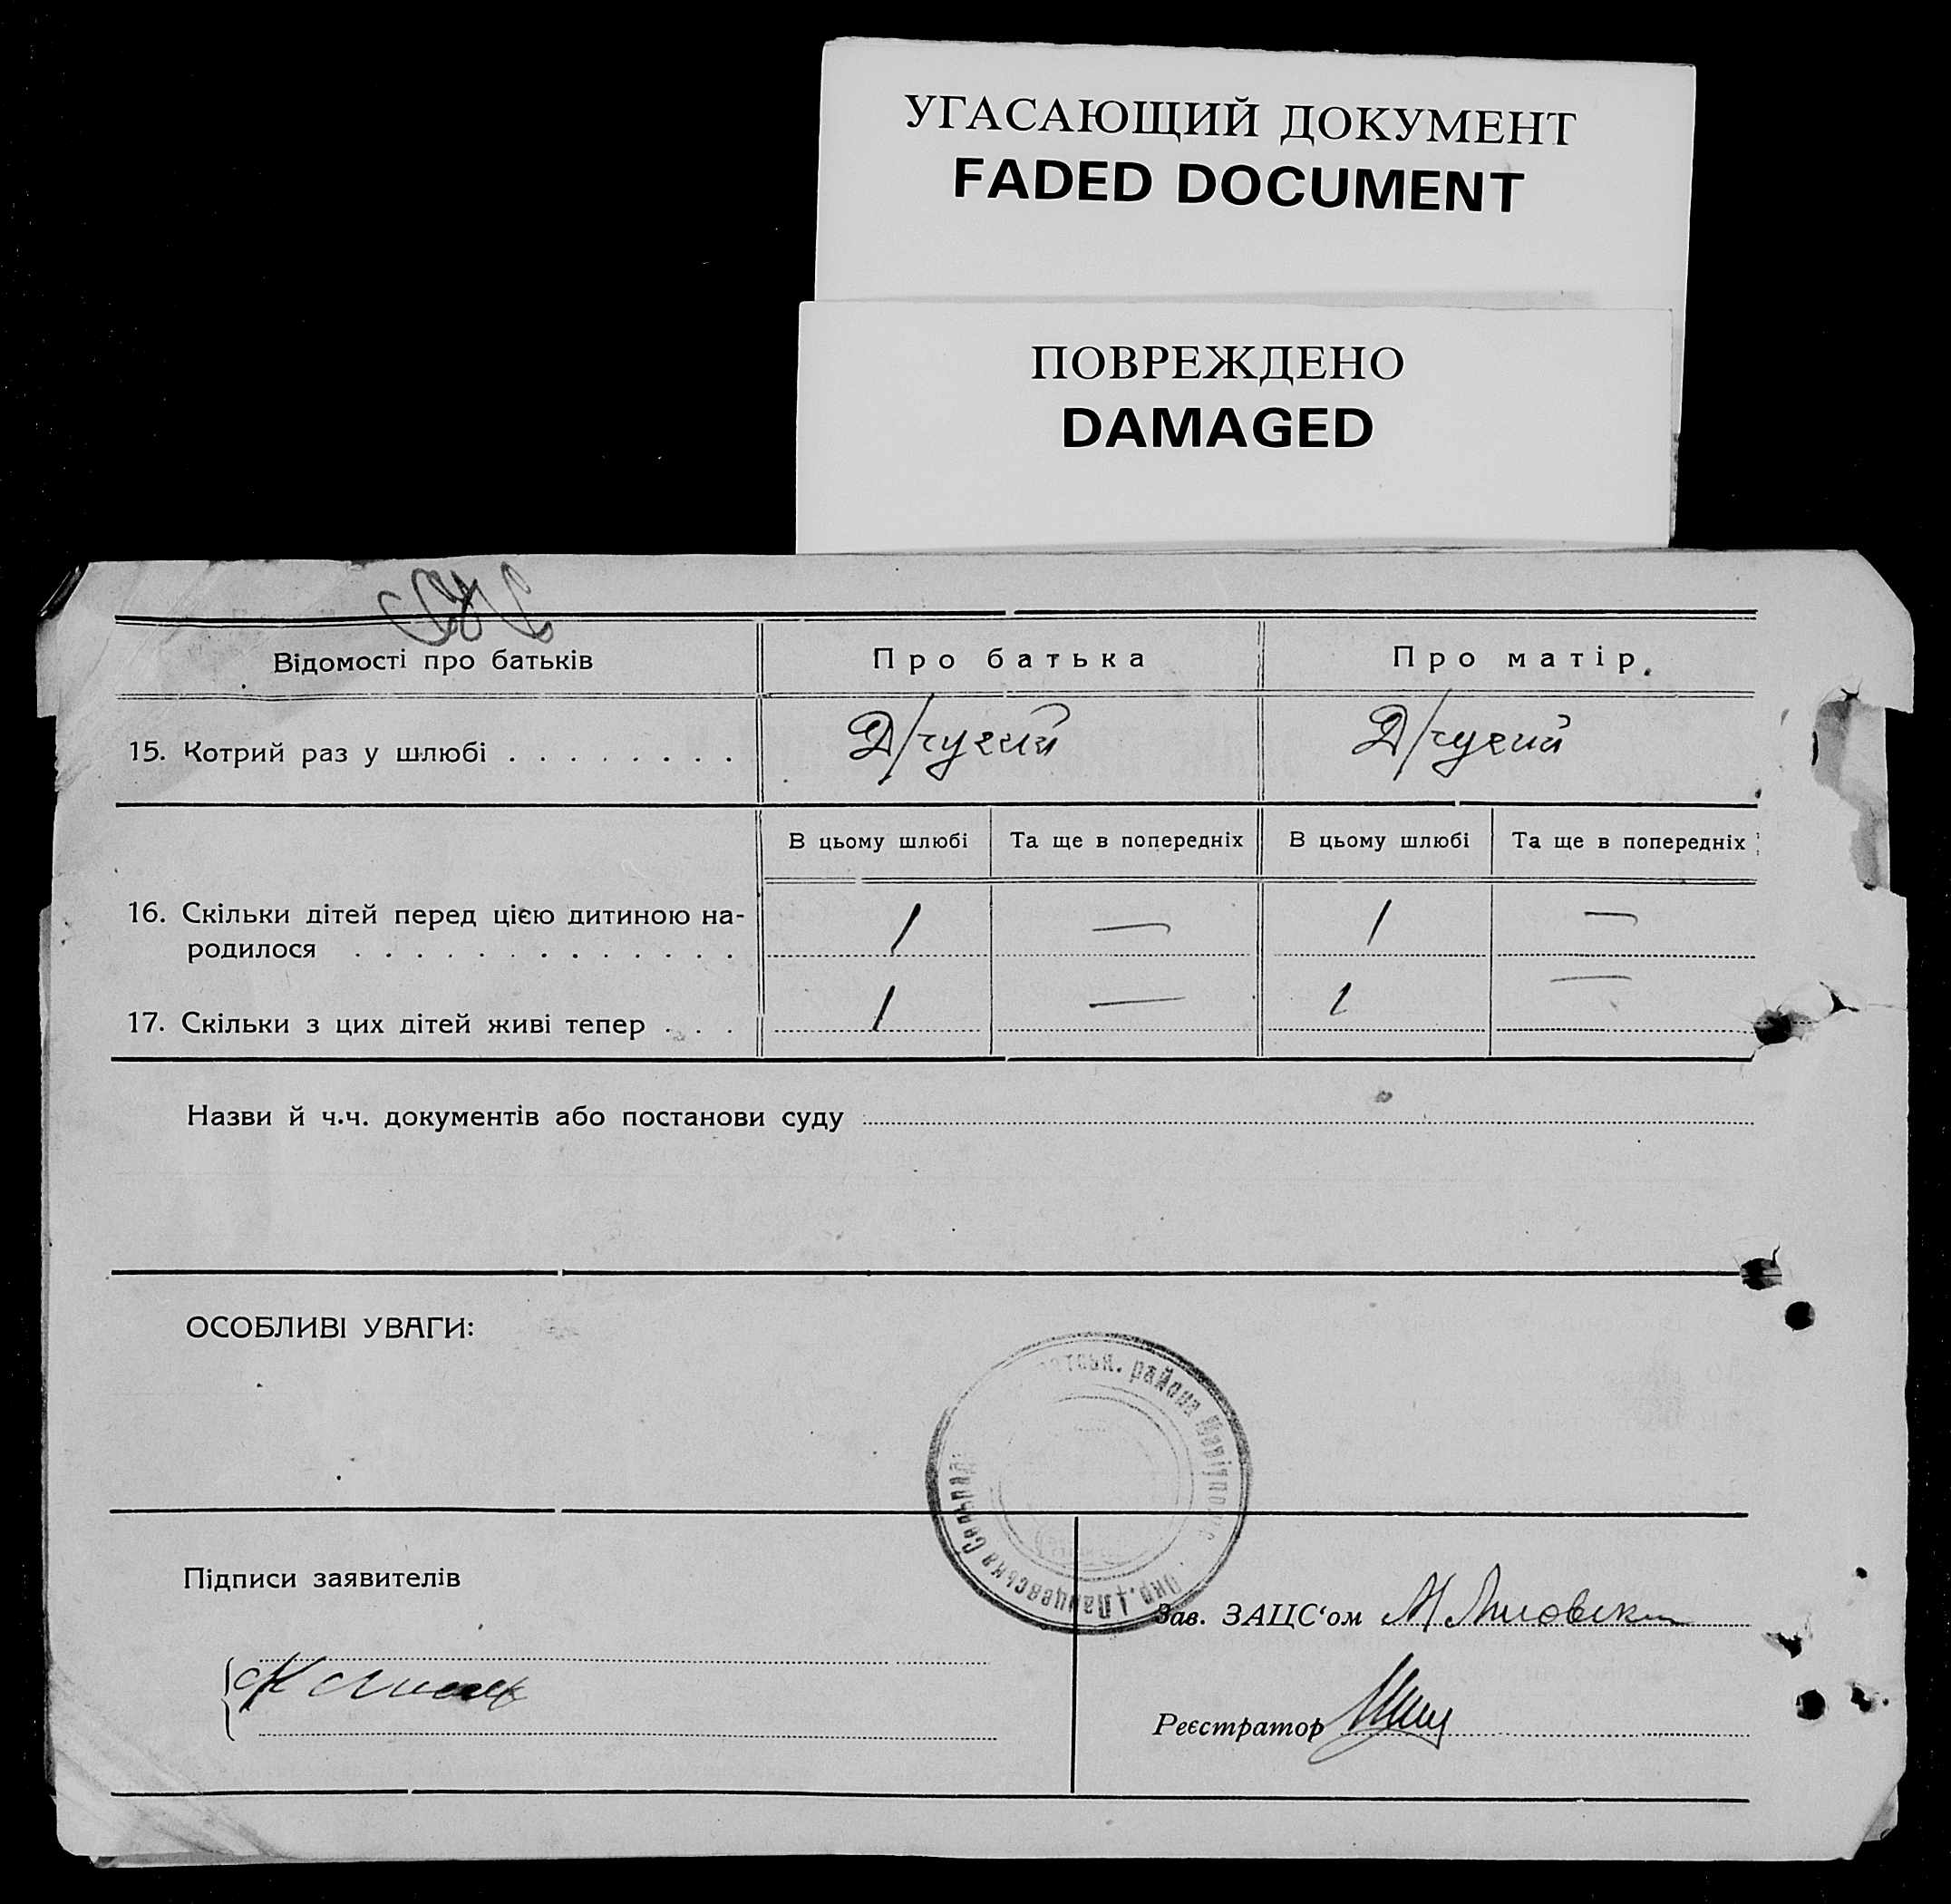 УГАСАЮЩИЙ ДОКУМЕНТ
FADED DOCUMENT
ПОВРЕЖДЕНО
DAMAGED
Відомості про батьків
Про батька
Про матір.
15. Котрий раз у шлюбі . . . . . . . .
Другий
Другий
В цьому шлюбі
Та ще в попередніх
В цьому шлюбі
Та ще в попередніх
16. Скільки дітей перед цією дитиною на-
родилося . . . . . . . . . . . . .
1
—
1
—
17. Скільки з цих дітей живі тепер . . .
1
—
1
—
Назви й ч.ч. документів або постанови суду
ОСОБЛИВІ УВАГИ:
района Маріупольс
Окр.
Сельрад
Підписи заявителів
Зав. ЗАЦС‘ом
Реєстратор